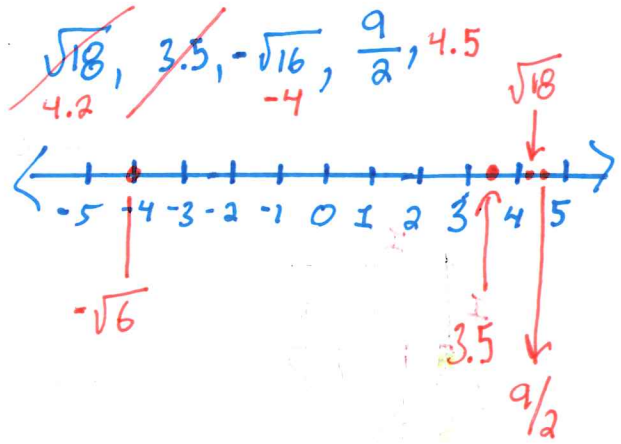 √18, 3.5, -√16, 9/2, 4.5
4.2 -4
√18
-5 -4 -3 -2 -1 0 1 2 3 4 5
-√6
3.5
9/2